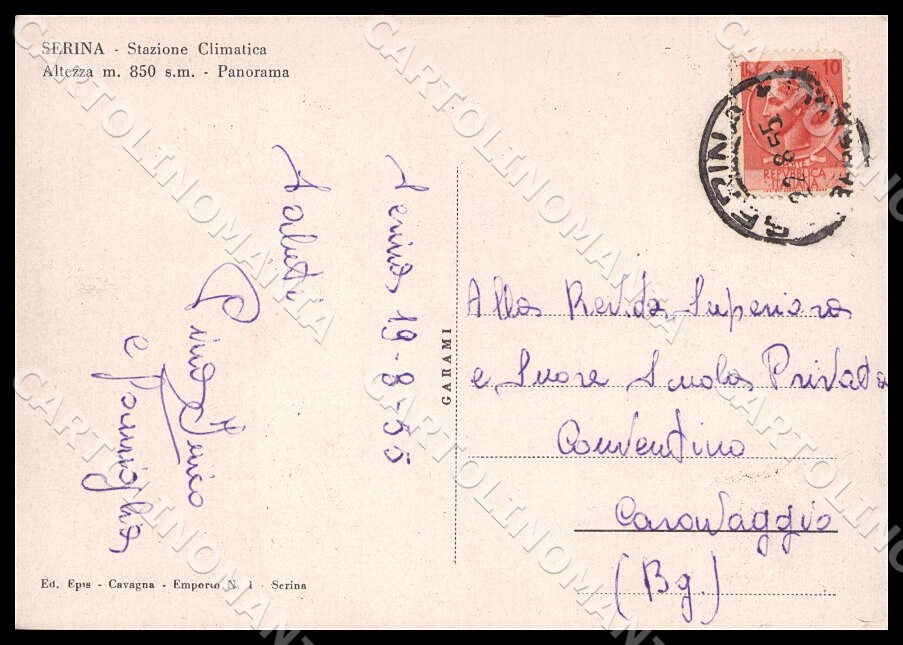 SERINA - Stazione Climatica
Altezza m. 850 s.m. - Panorama
LIRE 10
REPVBBLICA
ITALIANA
SERINA
22 8 55
Serina 19-8-55
Saluti
e Famiglia
GARAMI
Alla Rev.da Superiora
e Suore Scuola Privata
Conventino
Caravaggio
(Bg.)
Ed. Epis - Cavagna - Emporio N. 1 - Serina
CARTOLINOMANIA